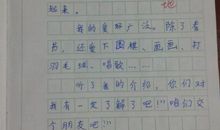 起来。
地
我的爱好广泛。除了看
书，还爱下围棋、画画、打
羽毛球、唱歌……
听了我的介绍，你们对
我有一定了解了吧!!!咱们交
个朋友吧!!!